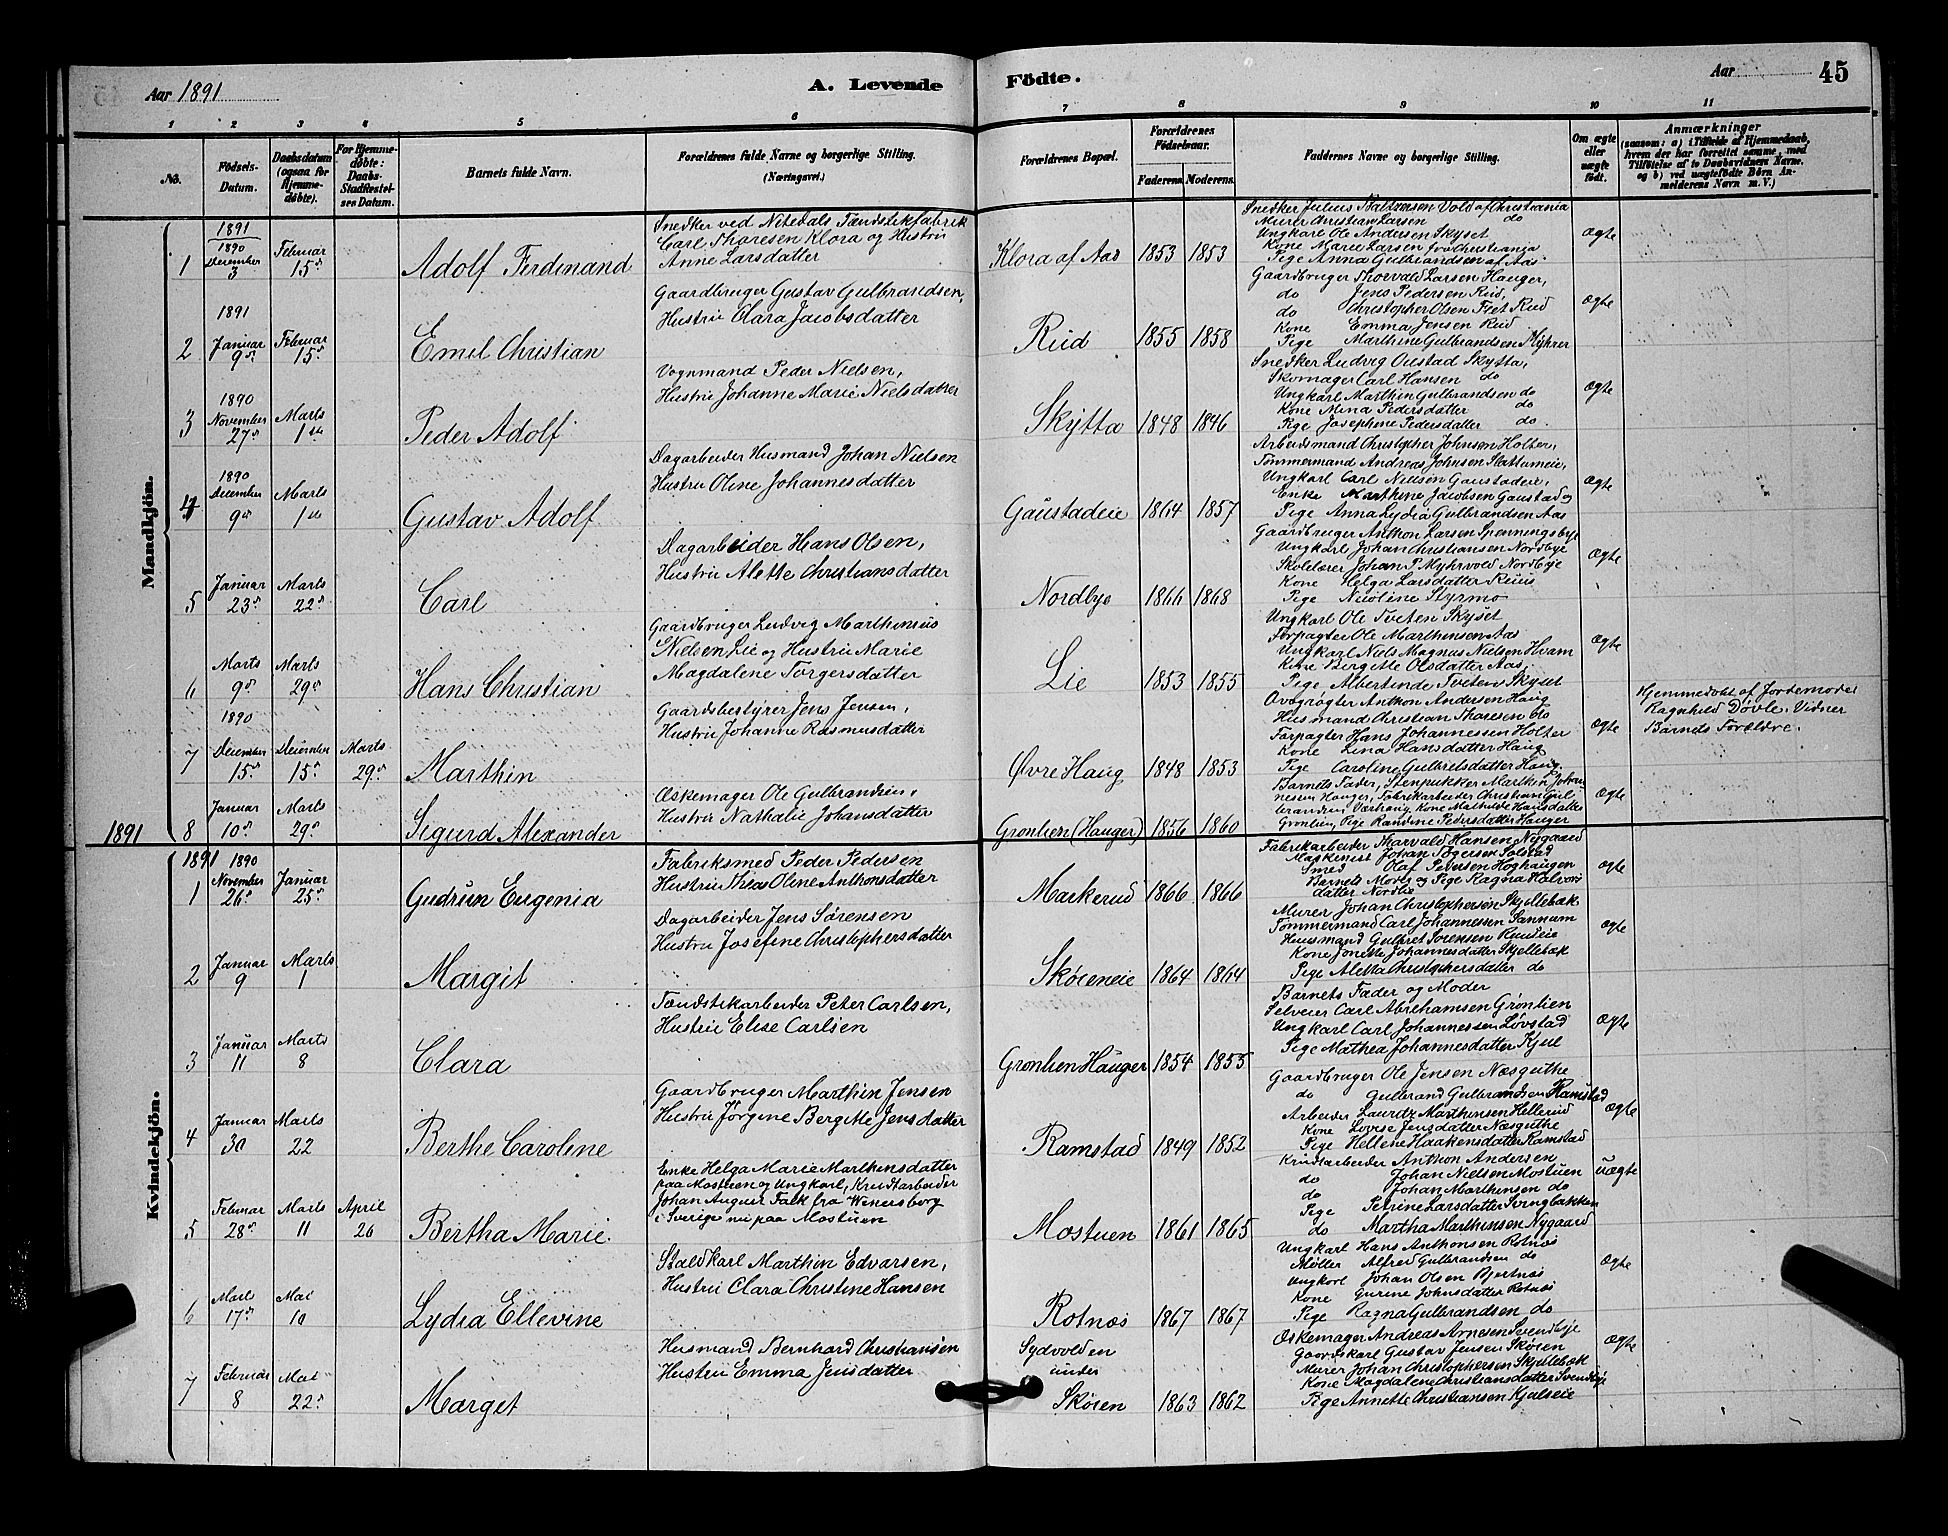 Aar 1891
A. Levende
Födte.
Aar
45
1 2 3 4 5 6 7 8 9 10 11
No.
Födsels-
Datum.
Daabsdatum
(ogsaa for
Hjemme-
döbte).
For Hjemme-
döbte:
Daabs-
Stadfæstel-
ses Datum.
Barnets fulde Navn.
Forældrenes fulde Navne og borgerlige Stilling.
(Næringsvei.)
Forældrenes Bopæl.
Forældrenes
Födselsaar.
Faderens
Moderens
Faddernes Navne og borgerlige Stilling.
Om ægte
eller
uægte
födt.
Anmærkninger
(saasom: a) i Tilfælde af Hjemmedaab,
hvem der har forrettet samme, med
Tilföielse af to Daabsvidners Navne.
og b) ved uægtefödte Börn An-
melderens Navn m. V.)
Mandkjön.
1891
1
1890
December
3
Februar
15de
Adolf Ferdinand
Snedker ved Nitedals Tændstikfabrik
Carl Thoresen Klora og Hustru
Anne Larsdatter
Klora af Aas
1853
1853
Snedker Julius Baltzersen Vold af Christiania
Murer Christian Larsen do
Ungkarl Ole Andersen Skyset
Kone Marie Larsen fra Christiania
Pige Anna Gulbrandsen af Aas
ægte
1891
2
Januar
9de
Februar
15de
Emil Christian
Gaardbruger Gustav Gulbrandsen,
Hustru Clara Jacobsdatter
Rud
1855
1858
Gaardbruger Thorvald Larsen Hauger,
do Jens Pedersen Rud,
do Christopher Olsen Rud
Kone Emma Jensen Rud
Pige Marthine Gulbrandsen Myhrer
ægte
1890
3
November
27de
Marts
1ste
Peder Adolf
Vognmand Peder Nielsen,
Hustru Johanne Marie Nielsdatter
Skytta
1848
1846
Snedker Ludvig Oustad Skytta,
Skomager Carl Hansen do
Ungkarl Marthin Gulbrandsen do
Kone Mina Pedersdatter do
Pige Josephine Pedersdatter do.
ægte
1890
4
December
9de
Marts
1ste
Gustav Adolf
Dagarbeider Husmand Johan Nielsen
Hustru Oline Johannesdatter
Gaustadeie
1864
1857
Arbeidsmand Christopher Johnsen Holter,
Tømmermand Andreas Johnsen Slattumeie,
Ungkarl Carl Nielsen Gaustadeie,
Enke Marthine Jacobsen Gaustad og
Pige Anna Lydia Gulbrandsen Aas
ægte
5
Januar
23de
Marts
22de
Carl
Dagarbeider Hans Olsen,
Hustru Alette Christiansdatter
Nordbye
1866
1868
Gaardbruger Anthon Larsen Spenningsbye
Ungkarl Johan Christiansen Nordbye
Skolelærer Johan P. Myhrvold Nordbye
Kone Helga Larsdatter
Pige Nicoline Styrmo
ægte
6
Marts
9de
Marts
29de
Hans Christian
Gaardbruger Ludvig Marthinius
Nielsen Lie og Hustru Marie
Magdalene Torgersdatter
Lie
1853
1855
Ungkarl Ole Tveten Skyset
Forpagter Ole Marthinsen Aas
Ungkarl Niels Magnus Nielsen Hvam
Kone Bergette Olsdatter Aas,
Pige Albertinde Tveten Skyset
ægte
1890
7
December
15de
December
15de
Marts
29de
Marthin
Gaardsbestyrer Jens Jensen,
Hustru Johanne Rasmusdatter
Øvre Haug
1848
1853
Anthon Andersen Haug
Husmand Christian Thoresen do
Forpagter Hans Johannessen Holter
Kone Lina Hansdatter Haug
Pige Caroline Gulbretsdatter Haug.
ægte
Hjemmedøbt af Jordemoder
Ragnhild Døvle. Vidner
Barnets Forældre.
8
Januar
10de
Marts
29de
Sigurd Alexander
Æskemager Ole Gulbrandsen,
Hustru Nathalie Johansdatter
Grønlien (Hauger)
1856
1860
Barnets Fader, Stenpukker Marthin Johan-
nessen Hauger, Fabrikarbeider Christian Gul-
brandsen Værhaug Kone Mathilde Hansdatter
Grønlien, Pige Randine Pedersdatter Hauger
ægte
1891
Kvindekjön.
1891
1
1890
November
26de
Januar
25de
Gudrun Eugenia
Fabriksmed Peder Pedersen
Hustru Thea Oline Anthonsdatter
Markerud
1866
1866
Fabrikarbeider Tharvald Hansen Nygaard
Maskinist Johan Solstad
Smed Olaf Pedersen Høghaugen
Barnets Moder og Pige Ragna Halvors
datter Nordlie
ægte
2
Januar
9
Marts
1
Margit
Dagarbeider Jens Sørensen
Hustru Josefine Christophersdatter
Skøieneie
1864
1864
Murer Johan Christophersen Skjellebæk
Tømmermand Carl Johannessen Sannum
Huusmand Gulbret Sørensen
Kone Jonette Johannesdatter Skjellebæk
Pige Aletta Christophersdatter do
ægte
3
Januar
11
Marts
8
Clara
Tændstikarbeider Peter Carlsen,
Hustru Elise Carlsen
Grønlien Hauger
1854
1855
Barnets Fader og Moder
Selveier Carl Abrahamsen Grønlien
Ungkarl Carl Johannessen Løvstad
Pige Mathea Johannesdatter Kjul
ægte
4
Januar
30
Marts
22
Berthe Caroline
Gaardbruger Marthin Jensen
Hustru Jørgine Bergitte Jensdatter
Ramstad
1849
1852
Gaardbruger Ole Jensen Næsguthe
do Gulbrand Gulbrandsen Ramstad
Arbeider Lauritz Marthinsen Hellerud
Kone Lovise Jensdatter Næsguthe
Pige Hellene Haakensdatter Ramstad
ægte
5
Februar
28de
Marts
11
April
26
Bertha Marie.
Enke Helga Marie Marthinsdatter
paa Mostuen og Ungkarl, Krudtarbeider
Johan August Falk fra Wenersborg
i Sverige nu paa Mostuen
Mostuen
1861
1865
Krudtarbeider Anthon Andersen
do Johan Nielsen Mostuen
do Johan Marthinsen do
Pige Petrine Larsdatter
do Martha Marthinsen Nygaard
uægte
6
Marts
17de
Mai
10
Lydia Ellevine
Staldkarl Marthin Edvarsen,
Hustru Clara Christine Hansen
Rotnæs
1867
1867
Ungkarl Hans Anthonsen Rotnæs
Møller Alfred Gulbrandsen do
Ungkarl Johan Olsen Bjertnæs
Kone Gurine Johnsdatter Rotnæs
Pige Ragna Gulbrandsen do
ægte
7
Februar
8
Mai
22de
Marget
Husmand Bernhard Christiansen
Hustru Emma Jensdatter
Sydvolden
under
Skøien
1863
1862
Æskemager Andreas Arnesen Svendbye
Gaardskarl Gustav Jensen Skøien
Murer Johan Christophersen Skjellebæk
Kone Magdalene Christiansdatter Svendbye
Pige Annette Christiansen Kjulseie
ægte